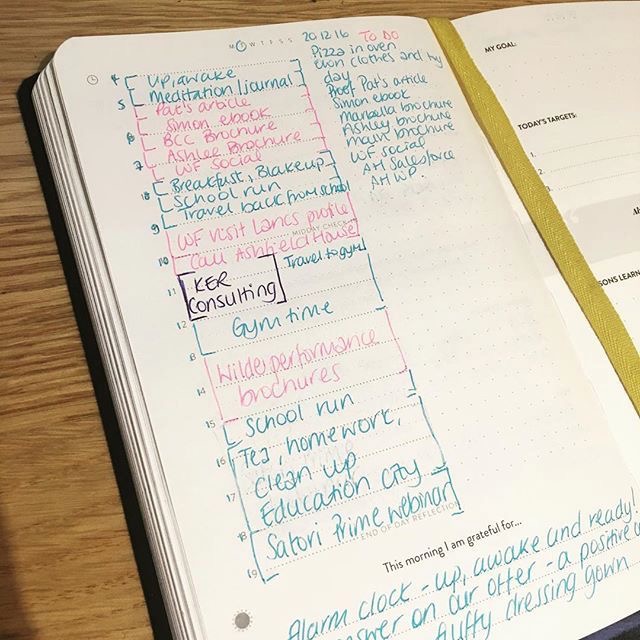 M T W T F S S 20.12.16 TO DO
4 up, awake
Meditation / journal
5 Pat's article
Simon ebook
6 BCC Brochure
Ashlee Brochure
7 WF Social
Breakfast, Blake up
8 School run
Travel back from school
9
WF visit Lancs profile
MIDDAY CHECK-IN
10 Call Ashfield House
Travel to gym
11 KER
Consulting
12
Gym time
13
Wilde performance
14 brochures
15
School run
16 Tea, homework,
clean up
17
Education City
18 Satori Prime webinar
END OF DAY REFLECTION
19
Pizza in oven
own clothes and
day
Proof Pat's article
Simon ebook
brochure
Ashley brochure
brochure
WF social
AH Salesforce
AH WP.
This morning I am grateful for...
Alarm clock - up, awake and ready!
answer on our offer - a positive
fluffy dressing gown
MY GOAL:
TODAY'S TARGETS:
1.
2.
3.
SONS LEARN